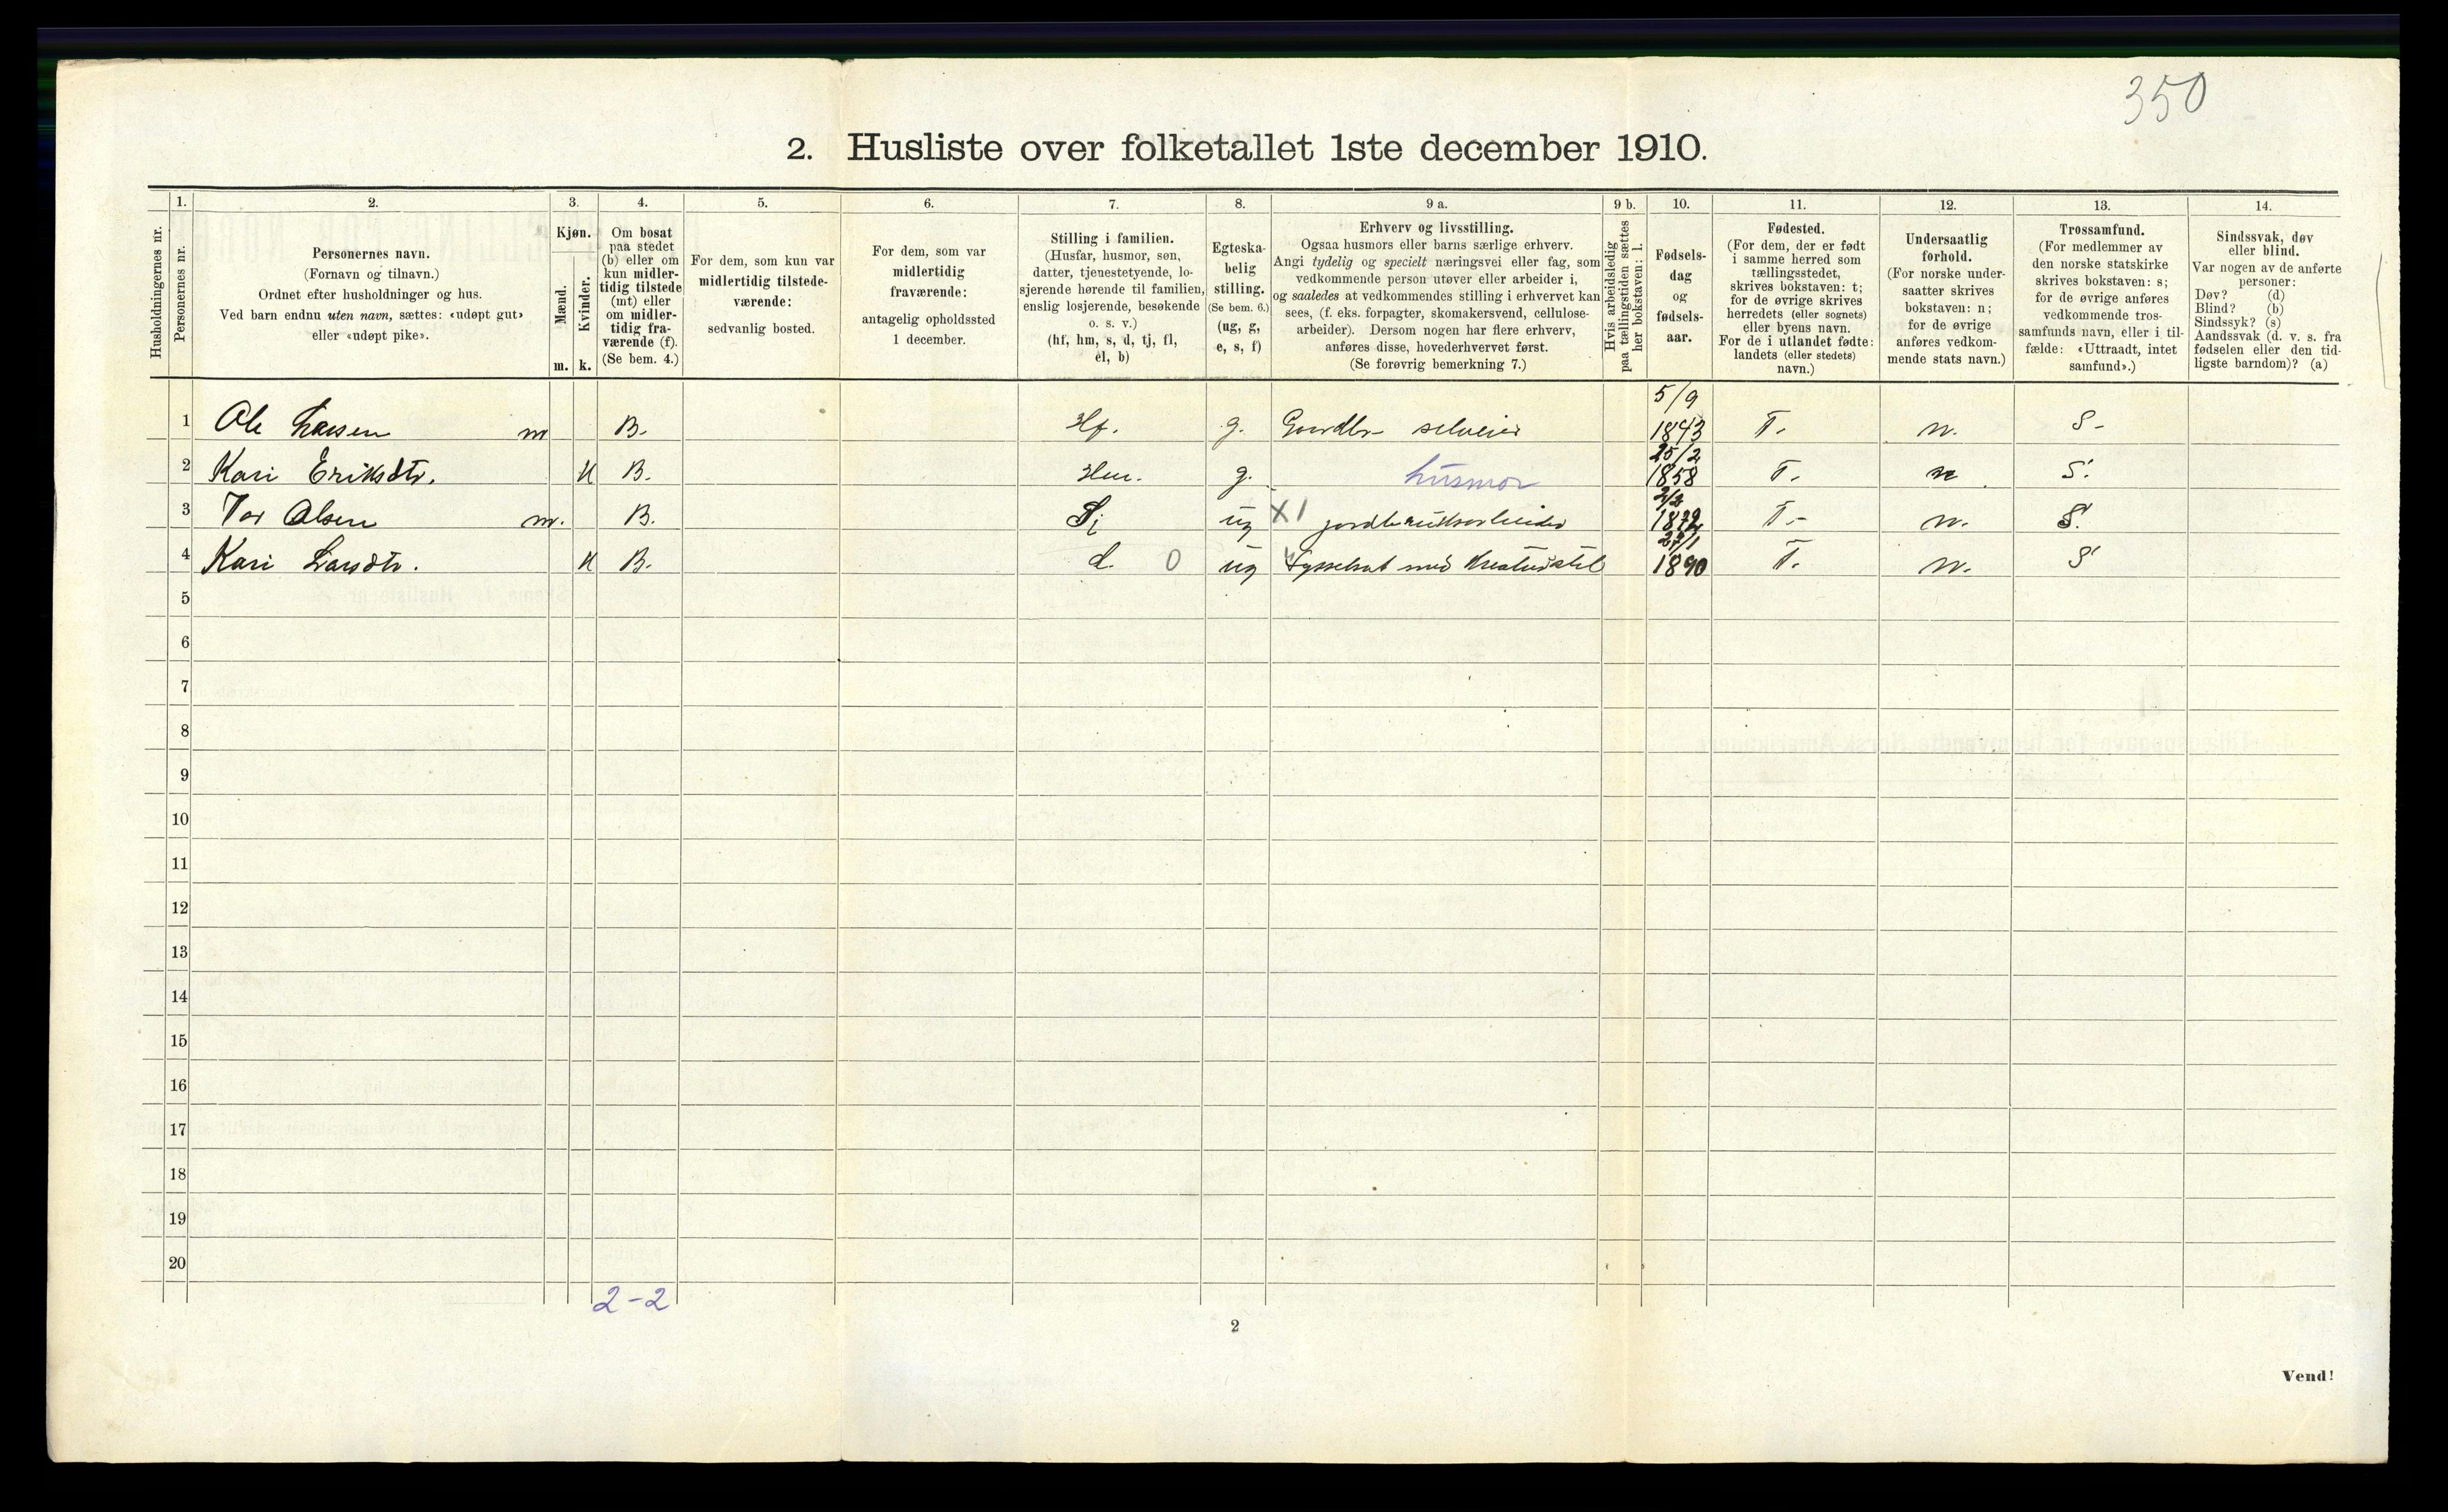 350
2. Husliste over folketallet 1ste december 1910.
Husholdningernes nr.
1.
Personernes nr.
2.
Personernes navn.
(Fornavn og tilnavn.)
Ordnet efter husholdninger og hus.
Ved barn endnu uten navn, sættes: «udøpt gut»
eller «udøpt pike».
3.
Kjøn.
Mænd.
Kvinder.
m. k.
4.
Om bosat
paa stedet
(b) eller om
kun midler-
tidig tilstede
(mt) eller
om midler-
tidig fra-
værende (f).
(Se bem. 4.)
5.
For dem, som kun var
midlertidig tilstede-
værende:
sedvanlig bosted.
6.
For dem, som var
midlertidig
fraværende:
antagelig opholdssted
1 december.
7.
Stilling i familien.
(Husfar, husmor, søn,
datter, tjenestetyende, lo-
sjerende hørende til familien,
enslig losjerende, besøkende
o. s. v.)
(hf, hm, s, d, tj, fl,
el, b)
8.
Egteska-
belig
stilling.
(Se bem. 6.)
(ug, g,
e, s, f)
9 a.
Erhverv og livsstilling.
Ogsaa husmors eller barns særlige erhverv.
Angi tydelig og specielt næringsvei eller fag, som
vedkommende person utøver eller arbeider i,
og saaledes at vedkommendes stilling i erhvervet kan
sees, (f. eks. forpagter, skomakersvend, cellulose-
arbeider). Dersom nogen har flere erhverv,
anføres disse, hovederhvervet først.
(Se forøvrig bemerkning 7.)
9 b.
Hvis arbeidsledig
paa tællingstiden sættes
her bokstaven: l.
10.
Fødsels-
dag
og
fødsels-
aar.
11.
Fødested.
(For dem, der er født
i samme herred som
tællingsstedet,
skrives bokstaven: t;
for de øvrige skrives
herredets (eller sognets)
eller byens navn.
For de i utlandet fødte:
landets (eller stedets)
navn.)
12.
Undersaatlig
forhold.
(For norske under-
saatter skrives
bokstaven: n;
for de øvrige
anføres vedkom-
mende stats navn.)
13.
Trossamfund.
(For medlemmer av
den norske statskirke
skrives bokstaven: s;
for de øvrige anføres
vedkommende tros-
samfunds navn, eller i til-
fælde: «Uttraadt, intet
samfund».)
14.
Sindssvak, døv
eller blind.
Var nogen av de anførte
personer:
Døv? (d)
Blind? (b)
Sindssyk? (s)
Aandssvak (d. v. s. fra
fødselen eller den tid-
ligste barndom)? (a)
1 Ole Larsen m B. Hf. g. Gaardbr selveier 5/9 1843 T. n. S-
2 Kari Eriksdtr. K B. Hm. g. husmor 25/2 1858 T. n. S.
3 Tor Olsen m. B. ug X1 jordbruksarbeider 1872 T.- n. S.
4 Kari Larsdtr. K B. d. 0 ug Sysselsat med Kreaturstel 27/1 1890 T. n. S
5
6
7
8
9
10
11
12
13
14
15
16
17
18
19
20
2-2
2
Vend!